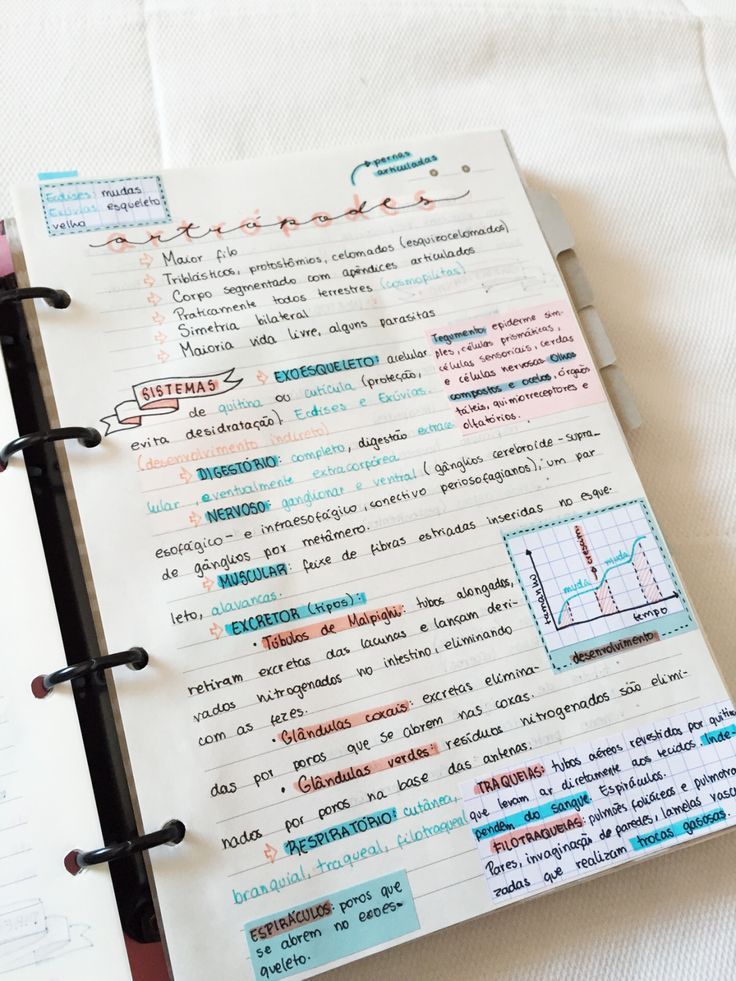 pernas
articuladas
Ecdises: mudas
Exúvias esqueleto
velho
artrópodes
Maior filo
Triblásticos, protostômios, celomados (esquizocelomados)
Corpo segmentado com apêndices articulados
Praticamente todos terrestres (cosmopolitas)
Simetria bilateral
Maioria vida livre, alguns parasitas
Tegumento: epiderme sim-
ples, células prismáticas,
células sensoriais, cerdas
e células nervosas. Olhos
compostos e ocelos, órgãos
táteis, quimiorreceptores e
olfatórios.
SISTEMAS
EXOESQUELETO: acelular
de quitina ou cutícula (proteção,
evita desidratação). Ecdises e Exúvias.
(desenvolvimento indireto)
DIGESTÓRIO: completo, digestão extrace
lular, eventualmente extracorpórea
NERVOSO: ganglionar e ventral (gânglios cerebroide-supra_
esofágico- e infraesofágico, conectivo periosofagiano); um par
de gânglios por metâmero.
MUSCULAR: feixe de fibras estriadas inseridas no esque-
leto, alavancas.
EXCRETOR (tipos):
• Túbulos de Malpighi: tubos alongados,
retiram excretas das lacunas e lançam deri-
vados nitrogenados no intestino, eliminando
com as fezes.
tamanho
muda
crescim.
muda
tempo
desenvolvimento
• Glândulas coxais: excretas elimina-
das por poros que se abrem nas coxas.
• Glândulas verdes: resíduos nitrogenados são elimi-
nados por poros na base das antenas.
RESPIRATÓRIO: cutânea,
branquial, traqueal, filotraqueal
TRAQUEIAS: tubos aéreos revestidos por quitina
que levam ar diretamente aos tecidos. Inde-
pendem do sangue. Espiráculos.
FILOTRAQUEIAS: pulmões foliáceos e pulmona
Pares, invaginação de paredes, lamelas vascu
zadas que realizam trocas gasosas.
ESPIRÁCULOS: poros que
se abrem no exoes-
queleto.